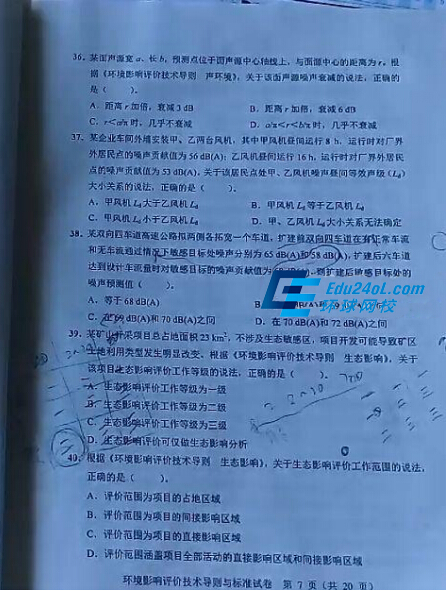 36、某面声源宽 a、长 b，预测点位于面声源中心轴线上，与面源中心的距离为 r。根
据《环境影响评价技术导则 声环境》，关于该面声源噪声衰减的说法，正确的
是（ ）。
A．距离 r 加倍，衰减 3 dB B．距离 r 加倍，衰减 6 dB
C．r＜a/π 时，几乎不衰减 D．a/π＜r＜b/π 时，几乎不衰减
37、某企业车间外墙安装甲、乙两台风机，其中甲风机昼间运行 8 h，运行时对厂界
外居民点的噪声贡献值为 56 dB(A)；乙风机昼间运行 16 h，运行时对厂界外居民
点的噪声贡献值为 53 dB(A)，关于该居民点处甲、乙风机噪声昼间等效声级（Ld）
大小关系的说法，正确的是（ ）。
A．甲风机 Ld 大于乙风机 Ld B．甲风机 Ld 等于乙风机 Ld
C．甲风机 Ld 小于乙风机 Ld D．甲、乙风机 Ld 大小关系无法确定
38、某双向四车道高速公路拟两侧各拓宽一个车道，扩建前双向四车道在有正常车流
和无车流通过情况下敏感目标处噪声分别为 65 dB(A)和 58 dB(A)，扩建后六车道
达到设计车流量时对敏感目标的噪声贡献值为 dB(A)，则扩建后敏感目标处的
噪声预测值（ ）。
A．等于 68 dB(A) B．
C．在 dB(A)和 70 dB(A)之间 D．在 70 dB(A)和 72 dB(A)之间
Edu24ol.com
环球网校
39、某矿山开采项目总占地面积 23 km²，不涉及生态敏感区，项目开可能导致矿区
土地利用类型发生明显改变。根据《环境影响评价技术导则 生态影响》，关于
该项目生态影响评价工作等级的说法，正确的是（ ）。
A．生态影响评价工作等级为一级
B．生态影响评价工作等级为二级
C．生态影响评价工作等级为三级
D．生态影响评价可仅做生态影响分析
2~20
40、根据《环境影响评价技术导则 生态影响》，关于生态影响评价工作范围的说法，
正确的是（ ）。
A．评价范围为项目的占地区域
B．评价范围为项目的间接影响区域
C．评价范围为项目的直接影响区域
D．评价范围涵盖项目全部活动的直接影响区域和间接影响区域
环境影响评价技术导则与标准试卷 第 7 页（共 20 页）